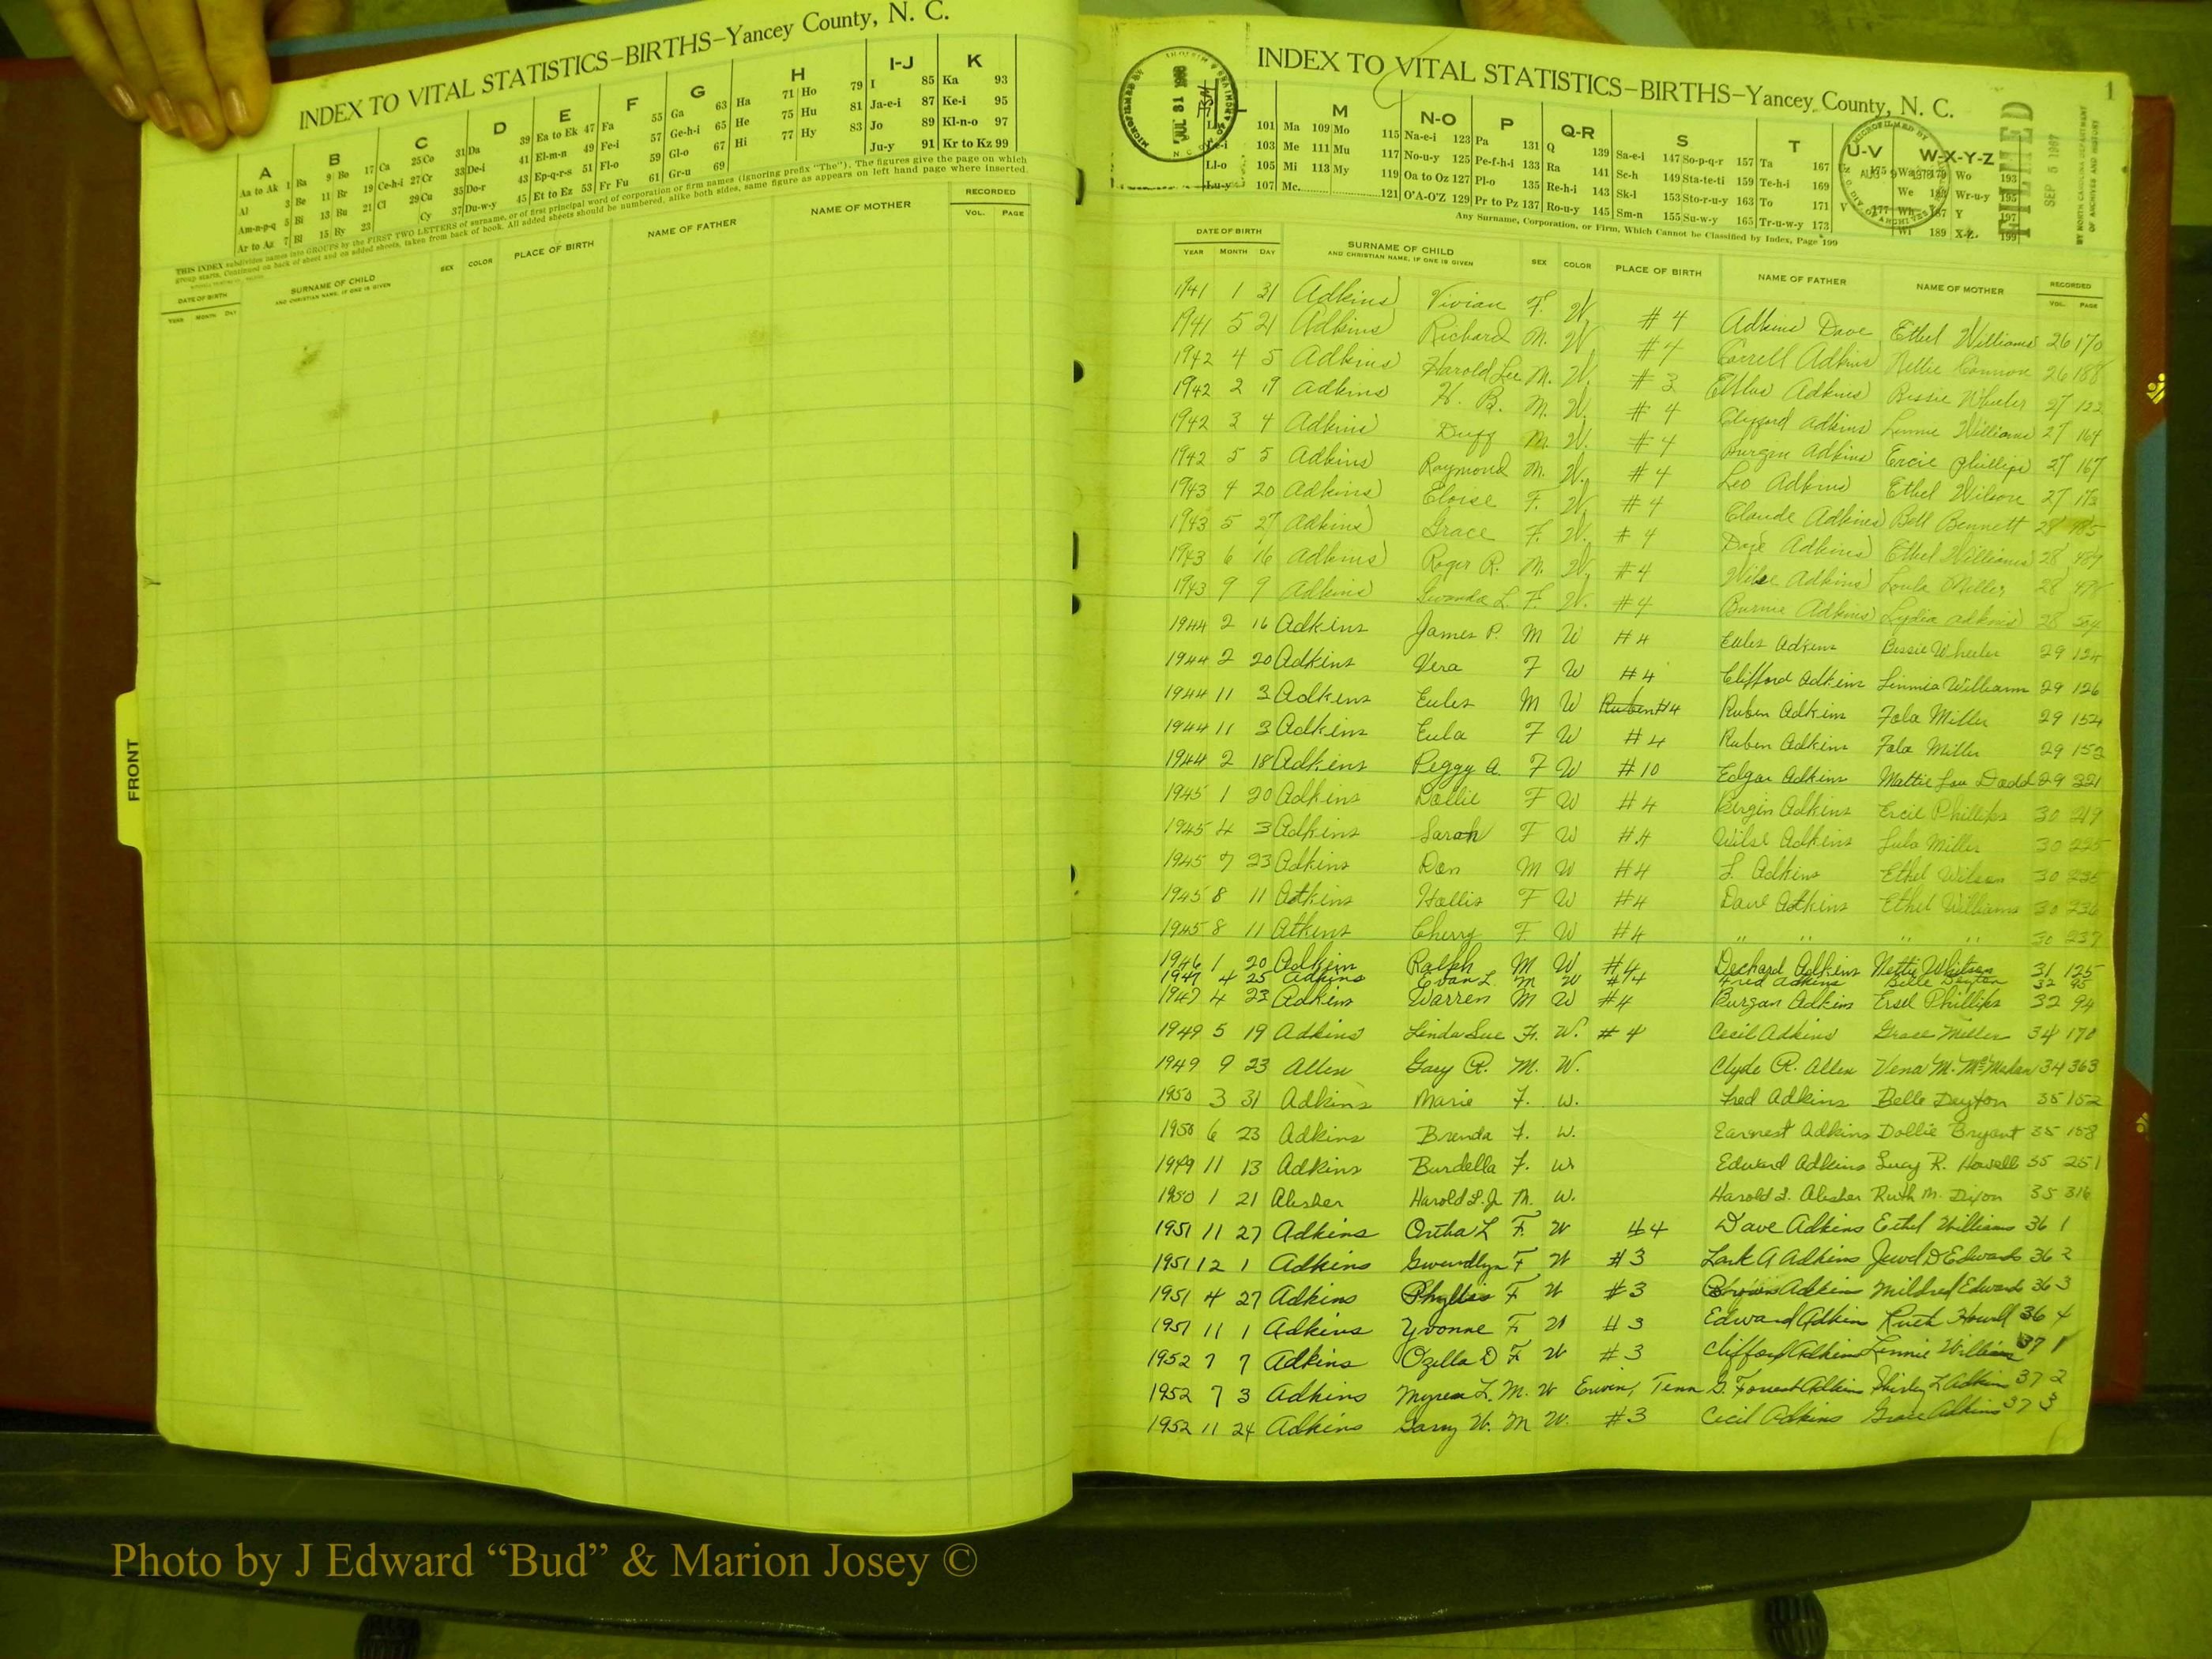 INDEX TO VITAL STATISTICS–BIRTHS–Yancey County, N. C.
A B C D E F G H I-J K
Aa to Ak 1 Ba 9 Bo 17 Ca 25 Co 31 Da 39 Ea to Ek 47 Fa 55 Ga 63 Ha 71 Ho 79 I 85 Ka 93
Al 3 Be 11 Br 19 Ce-h-i 27 Cr 33 De-i 41 El-m-n 49 Fe-i 57 Ge-h-i 65 He 75 Hu 81 Ja-e-i 87 Ke-i 95
Am-n-p-q 5 Bi 13 Bu 21 Cl 29 Cu 35 Do-r 43 Ep-q-r-s 51 Fl-o 59 Gl-o 67 Hi 77 Hy 83 Jo 89 Kl-n-o 97
Ar to Az 7 Bl 15 By 23 Cy 37 Du-w-y 45 Et to Ez 53 Fr Fu 61 Gr-u 69 Ju-y 91 Kr to Kz 99
THIS INDEX subdivides names into GROUPS by the FIRST TWO LETTERS of surname, or of first principal word of corporation or firm names (ignoring prefix "The"). The figures give the page on which
group starts. Continued on back of sheet and on added sheets, taken from back of book. All added sheets should be numbered, alike both sides, same figure as appears on left hand page where inserted.
DATE OF BIRTH SURNAME OF CHILD AND CHRISTIAN NAME, IF ONE IS GIVEN SEX COLOR PLACE OF BIRTH NAME OF FATHER NAME OF MOTHER RECORDED
YEAR MONTH DAY VOL. PAGE
FRONT
INDEX TO VITAL STATISTICS–BIRTHS–Yancey County, N. C.
1
MICROFILMED BY
JUL 31
FILMED
SEP 5 1987
BY NORTH CAROLINA DEPARTMENT
OF ARCHIVES AND HISTORY
M N-O P Q-R S T U-V W-X-Y-Z
101 Ma 109 Mo 115 Na-e-i 123 Pa 131 Q 139 Sa-e-i 147 So-p-q-r 157 Ta 167
103 Me 111 Mu 117 No-u-y 125 Pe-f-h-i 133 Ra 141 Sc-h 149 Sta-te-ti 159 Te-h-i 169 Wo 193
Ll-o 105 Mi 113 My 119 Oa to Oz 127 Pl-o 135 Re-h-i 143 Sk-l 153 Sto-r-u-y 163 To 171 We Wr-u-y 195
Lu-y 107 Mc 121 O'A-O'Z 129 Pr to Pz 137 Ro-u-y 145 Sm-n 155 Su-w-y 165 Tr-u-w-y 173 V 177 Wh 187 Y 197
Wi 189 X-Z 199
Any Surname, Corporation, or Firm, Which Cannot be Classified by Index, Page 199
DATE OF BIRTH SURNAME OF CHILD AND CHRISTIAN NAME, IF ONE IS GIVEN SEX COLOR PLACE OF BIRTH NAME OF FATHER NAME OF MOTHER RECORDED
YEAR MONTH DAY VOL. PAGE
1941 1 31 Adkins Vivian F. W. #4 Adkins Dave Ethel Williams 26 170
1941 5 21 Adkins Richard M. W. #4 Adkins Nettie 26 188
1942 4 5 Adkins Harold Lee M. W. #3 Adkins Bessie Wheeler 27 122
1942 2 19 Adkins H. B. M. W. #4 Clifford Adkins Linnie Williams 27 164
1942 3 4 Adkins Duff M. W. #4 Burgin Adkins Ercie Phillips 27 167
1942 5 5 Adkins Raymond M. W. #4 Leo Adkins Ethel Wilson 27 173
1943 4 20 Adkins Eloise F. W. #4 Claude Adkins Bell Bennett 28
1943 5 27 Adkins Grace F. W. #4 Dave Adkins Ethel Williams 28
1943 6 16 Adkins Roger R. M. W. #4 Adkins Loula Miller 28
1943 9 9 Adkins Gwenda L. F. W. #4 Burnie Adkins Lydia Adkins 28
1944 2 16 Adkins James P. M W #4 Eules Adkins Bessie Wheeler 29
1944 2 20 Adkins Vera F W #4 Clifford Adkins Linnie Williams 29 126
1944 11 3 Adkins Eules M W Ruben #4 Ruben Adkins Fola Miller 29
1944 11 3 Adkins Eula F W #4 Ruben Adkins Fola Miller 29 152
1944 2 18 Adkins Peggy A. F W #10 Edgar Adkins Mattie Lou Dodd 29 321
1945 1 20 Adkins Dollie F W #4 Bergin Adkins Ercil Phillips 30 219
1945 4 3 Adkins Sarah F W #4 Wilse Adkins Lula Miller 30 225
1945 7 23 Adkins Don M W #4 L. Adkins Ethel Wilson 30
1945 8 11 Atkins Hollis F W #4 Dave Atkins Ethel Williams 30 236
1945 8 11 Atkins Cherry F W #4 " " " " 30 237
1946 1 20 Adkins Ralph M W #4 Dechard Adkins Nettie Whitson 31 125
1947 4 25 Adkins Evan L. M W #4 Fred Adkins Belle Dayton 32 95
1947 4 23 Adkins Warren M W #4 Burgan Adkins Ersel Phillips 32 94
1949 5 19 Adkins Linda Sue F. W. #4 Cecil Adkins Grace Miller 34 170
1949 9 23 Allen Gary R. M. W. Clyde R. Allen Vena M. McMahan 34 363
1950 3 31 Adkins Marie F. W. Fred Adkins Belle Dayton 35 152
1950 6 23 Adkins Brenda F. W. Earnest Adkins Dollie Bryant 35 158
1949 11 13 Adkins Burdella F. W. Edward Adkins Lucy R. Howell 35 251
1950 1 21 Alesher Harold L. Jr M. W. Harold L. Alesher Ruth M. Dixon 35 316
1951 11 27 Adkins Ortha L F. W #4 Dave Adkins Ethel Williams 36 1
1951 12 1 Adkins Gwendlyn F W #3 Lark A Adkins Jewel D Edwards 36 2
1951 4 27 Adkins Phyllis F W #3 Adkins Mildred Edwards 36 3
1951 11 1 Adkins Yvonne F W #3 Edward Adkins Ruth Howell 36 4
1952 7 7 Adkins Ozella D F W #3 Clifford Adkins Linnie Williams 37 1
1952 7 3 Adkins L. M. W Erwin, Tenn G. Forrest Adkins Shirley L Adkins 37 2
1952 11 24 Adkins Garry W. M W. #3 Cecil Adkins Grace Adkins 37 3
Photo by J Edward “Bud” & Marion Josey ©